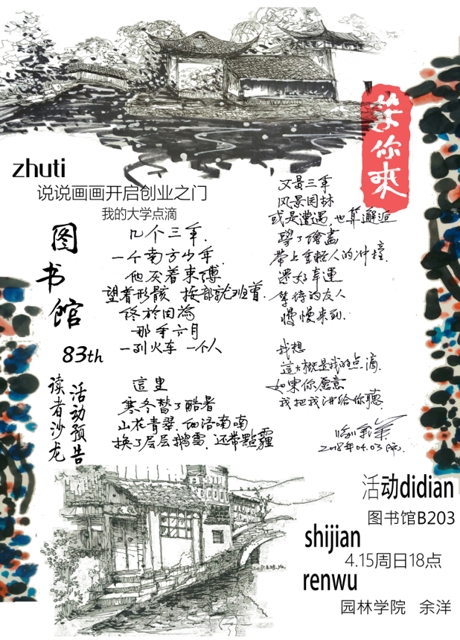 等你来
zhuti
说说画画开启创业之门
我的大学点滴
图书馆
83th
读者沙龙
活动预告
几个三年
一个南方少年
他厌着束缚
望着形骸 按部就班着
终於回
那年六月
一列火车 一个人
这里
寒冬替了酷暑
山花青翠
换了层层
又是三年
风景园林
或是遭遇，也算邂逅
学了绘画
带上年轻人的冲撞
还好幸运
等待的友人
慢慢来到
我想
这大概是我的点滴
如果你愿意
我把我讲给你听
2018年04.03
活动didian
图书馆B203
shijian
4.15周日18点
renwu
园林学院 余洋